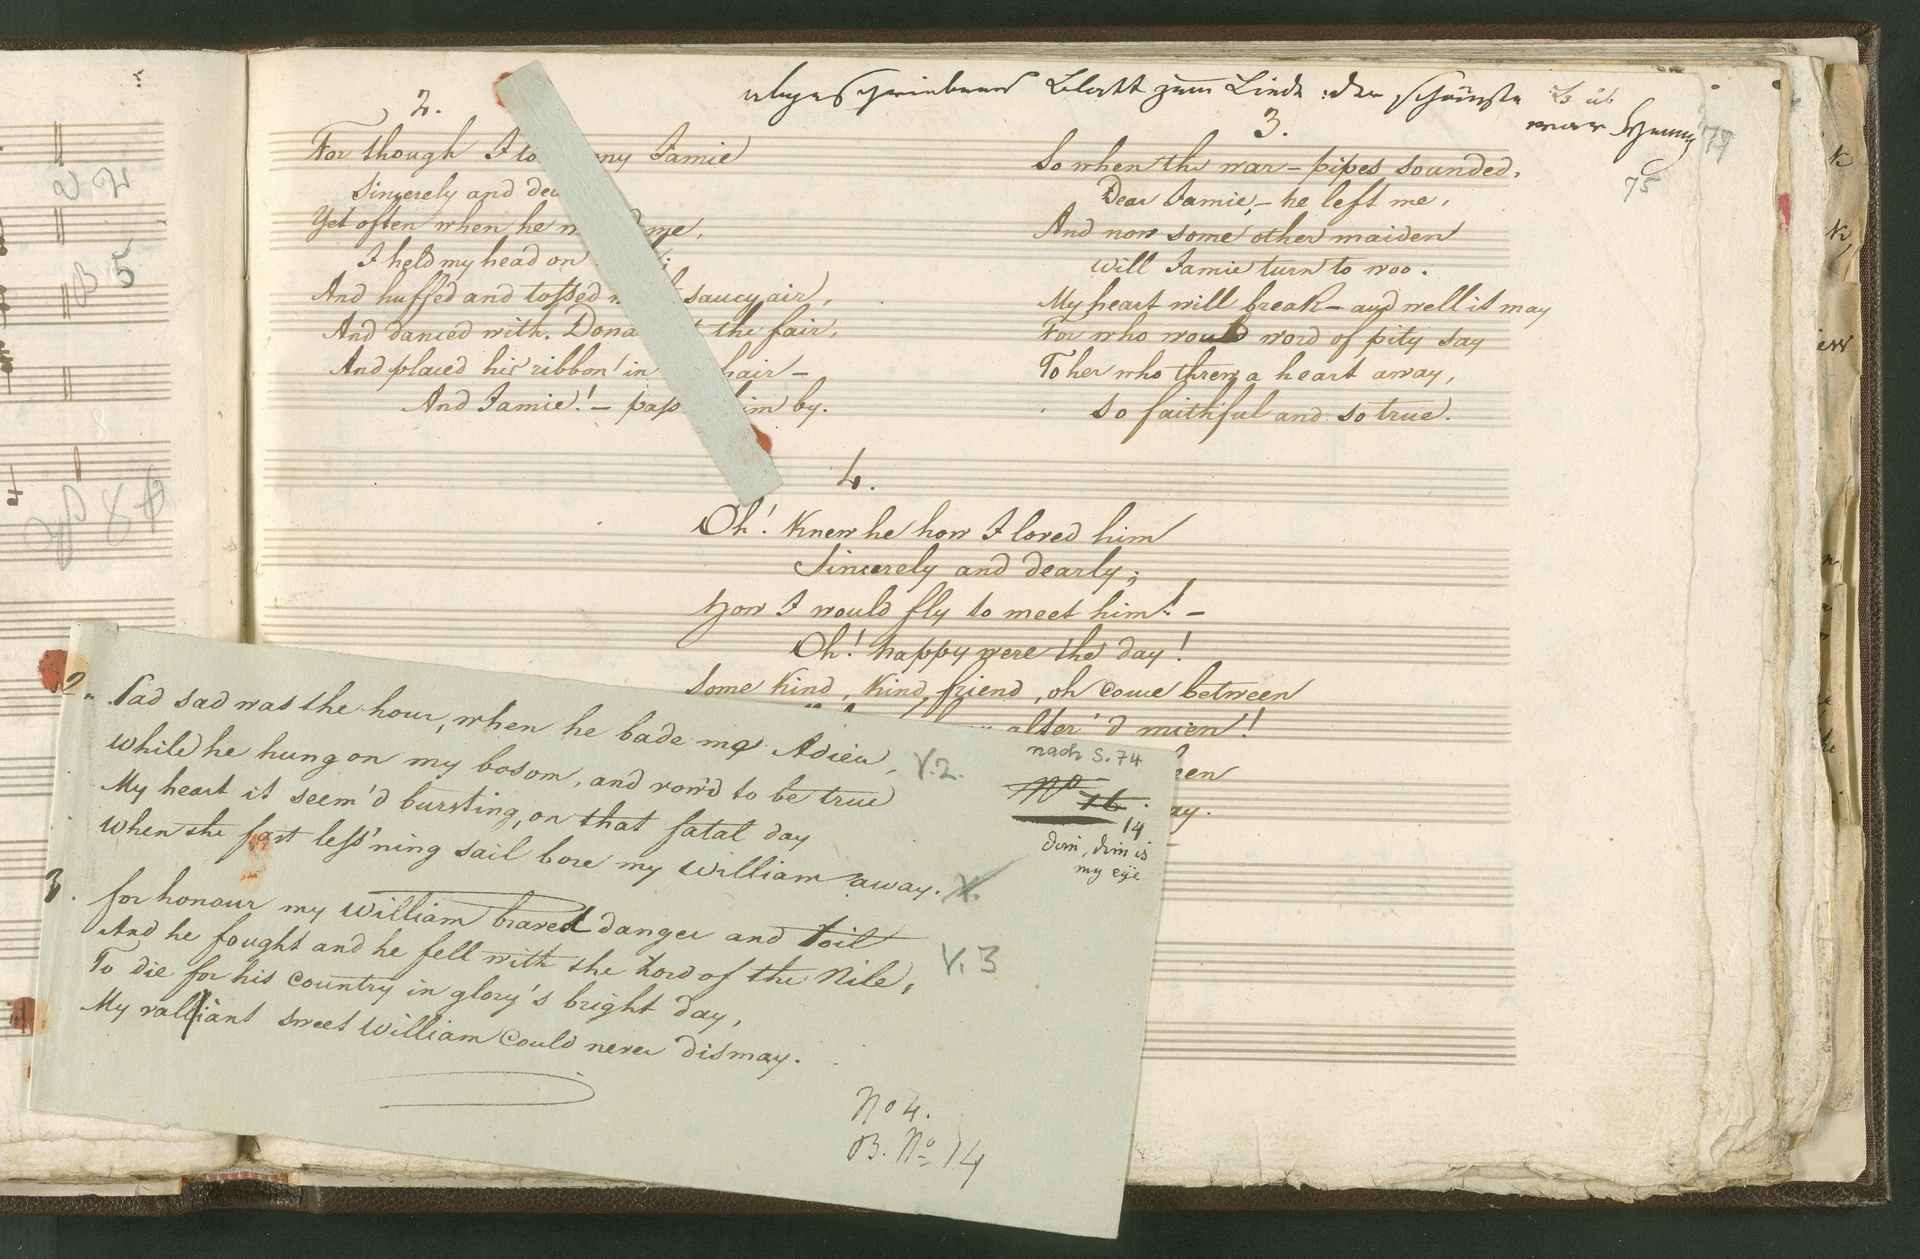 abgeschriebenes Blatt zum Liede: der schönste
77
75
2.
For though I lo ny Jamie
Sincerely and dea
Yet often when he me,
I held my head on
And huff'd and tossed saucy air,
And danced with Dona the fair,
And placed his ribbon in hair –
And Jamie! – pass im by.
3.
So when the war-pipes sounded,
Dear Jamie, – he left me,
And now some other maiden
Will Jamie turn to woo.
My heart will break – and well it may
For who would word of pity say
To her who threw a heart away,
So faithful and so true.
4.
Oh! Knew he how I loved him
Sincerely and dearly;
How I would fly to meet him! –
Oh! happy were the day!
Some kind, kind friend, oh come between
alter'd mien!
een
ay.
2.
Sad sad was the hour, when he bade me Adieu,
While he hung on my bosom, and vow'd to be true
My heart it seem'd bursting, on that fatal day
When the fast less'ning sail bore my William away.
V.2.
3.
For honour my William braved danger and toil
And he fought and he fell with the Lord of the Nile,
To die for his country in glory's bright day,
My valliant sweet William could never dismay.
V.3
nach S. 74
No 76.
14
dim, dim is
my eye
No 4.
B. No 14
2
5
8